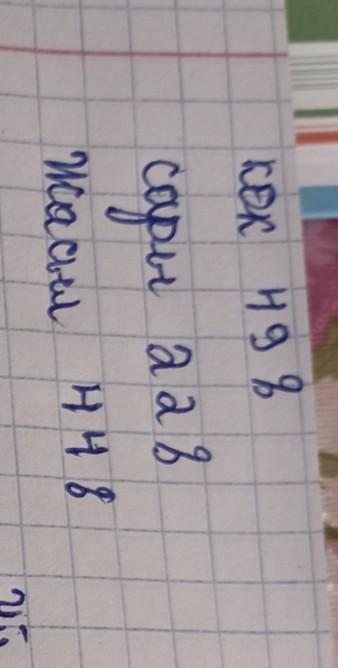 көк 498
сары 228
Жасыл 448